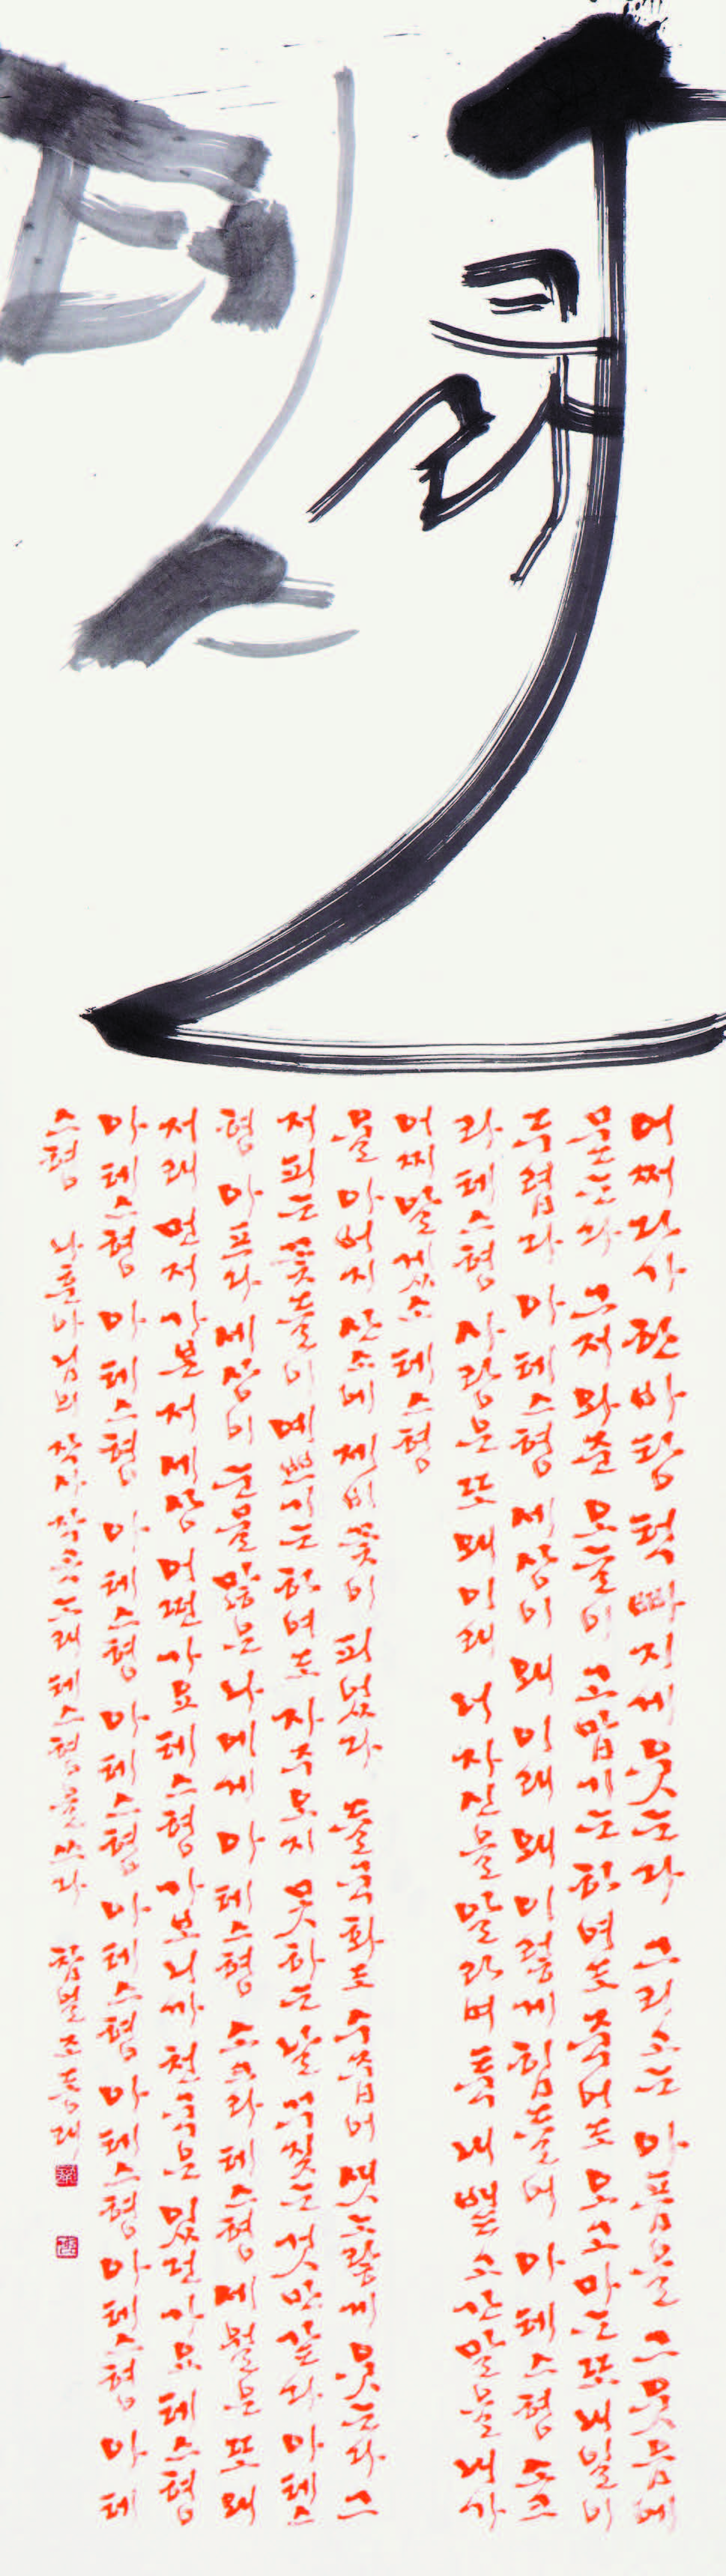 어쩌다가 한바탕 턱 빠지게 웃는다 그리고는 아픔을 그 웃음에
묻는다 그저 와준 오늘이 고맙기는 하여도 죽어도 오고 마는 또 내일이
두렵다 아 테스형 세상이 왜 이래 왜 이렇게 힘들어 아 테스형 소크
라테스형 사랑은 또 왜 이래 너 자신을 알라며 툭 내뱉고 간 말을 내가
어찌 알겠소 테스형
울 아버지 산소에 제비꽃이 피었다 들국화도 수줍어 샛노랗게 웃는다 그
저 피는 꽃들이 예쁘기는 하여도 자주 오지 못하는 날 꾸짖는 것만 같다 아 테스
형 아프다 세상이 눈물 많은 나에게 아 테스형 소크라테스형 세월은 또 왜
저래 먼저 가본 저세상 어떤가요 테스형 가보니까 천국은 있던가요 테스형
아 테스형 아 테스형 아 테스형 아 테스형 아 테스형 아 테스형 아 테스형 아 테
스형 나훈아님의 작사 작곡 노래 테스형을 쓰다 조동래